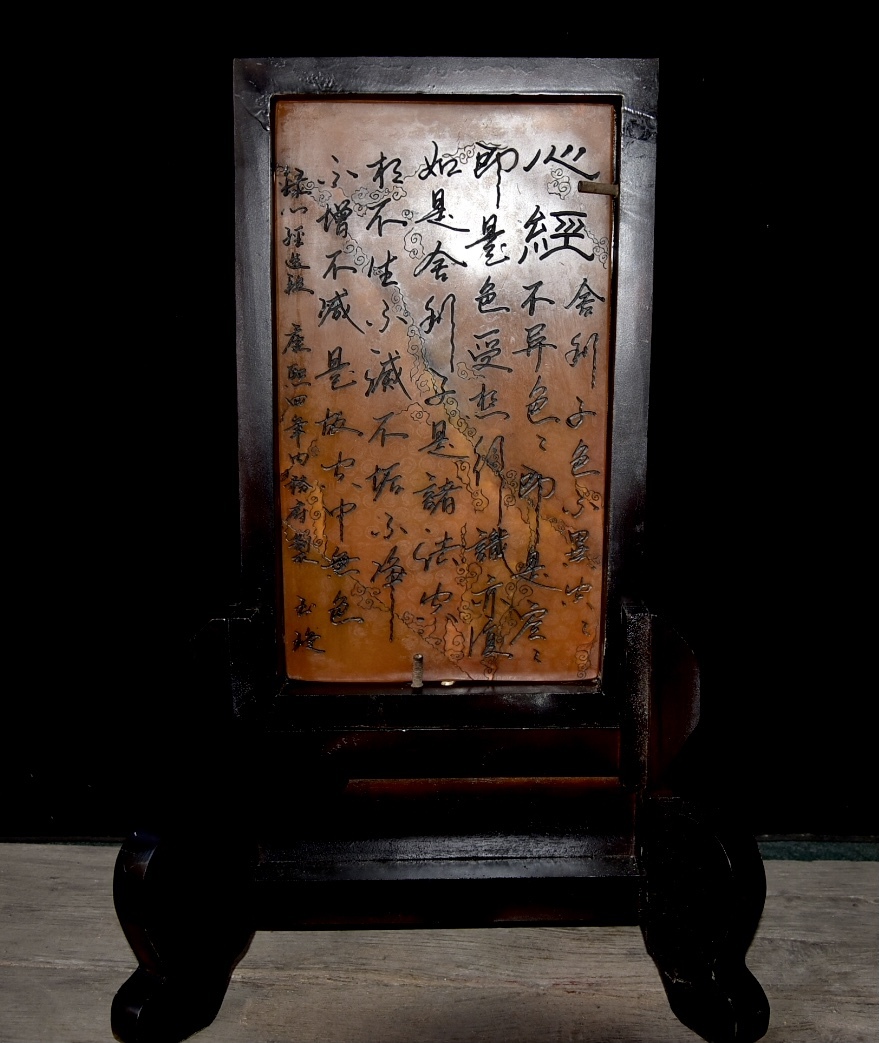 心經
舍利子色不異空〻
不异色〻即是空〻
即是色受想行識亦復
如是舍利子是諸法空
相不生不滅不垢不淨
不增不減是故空中無色
心經選段 康熙四年内務府製